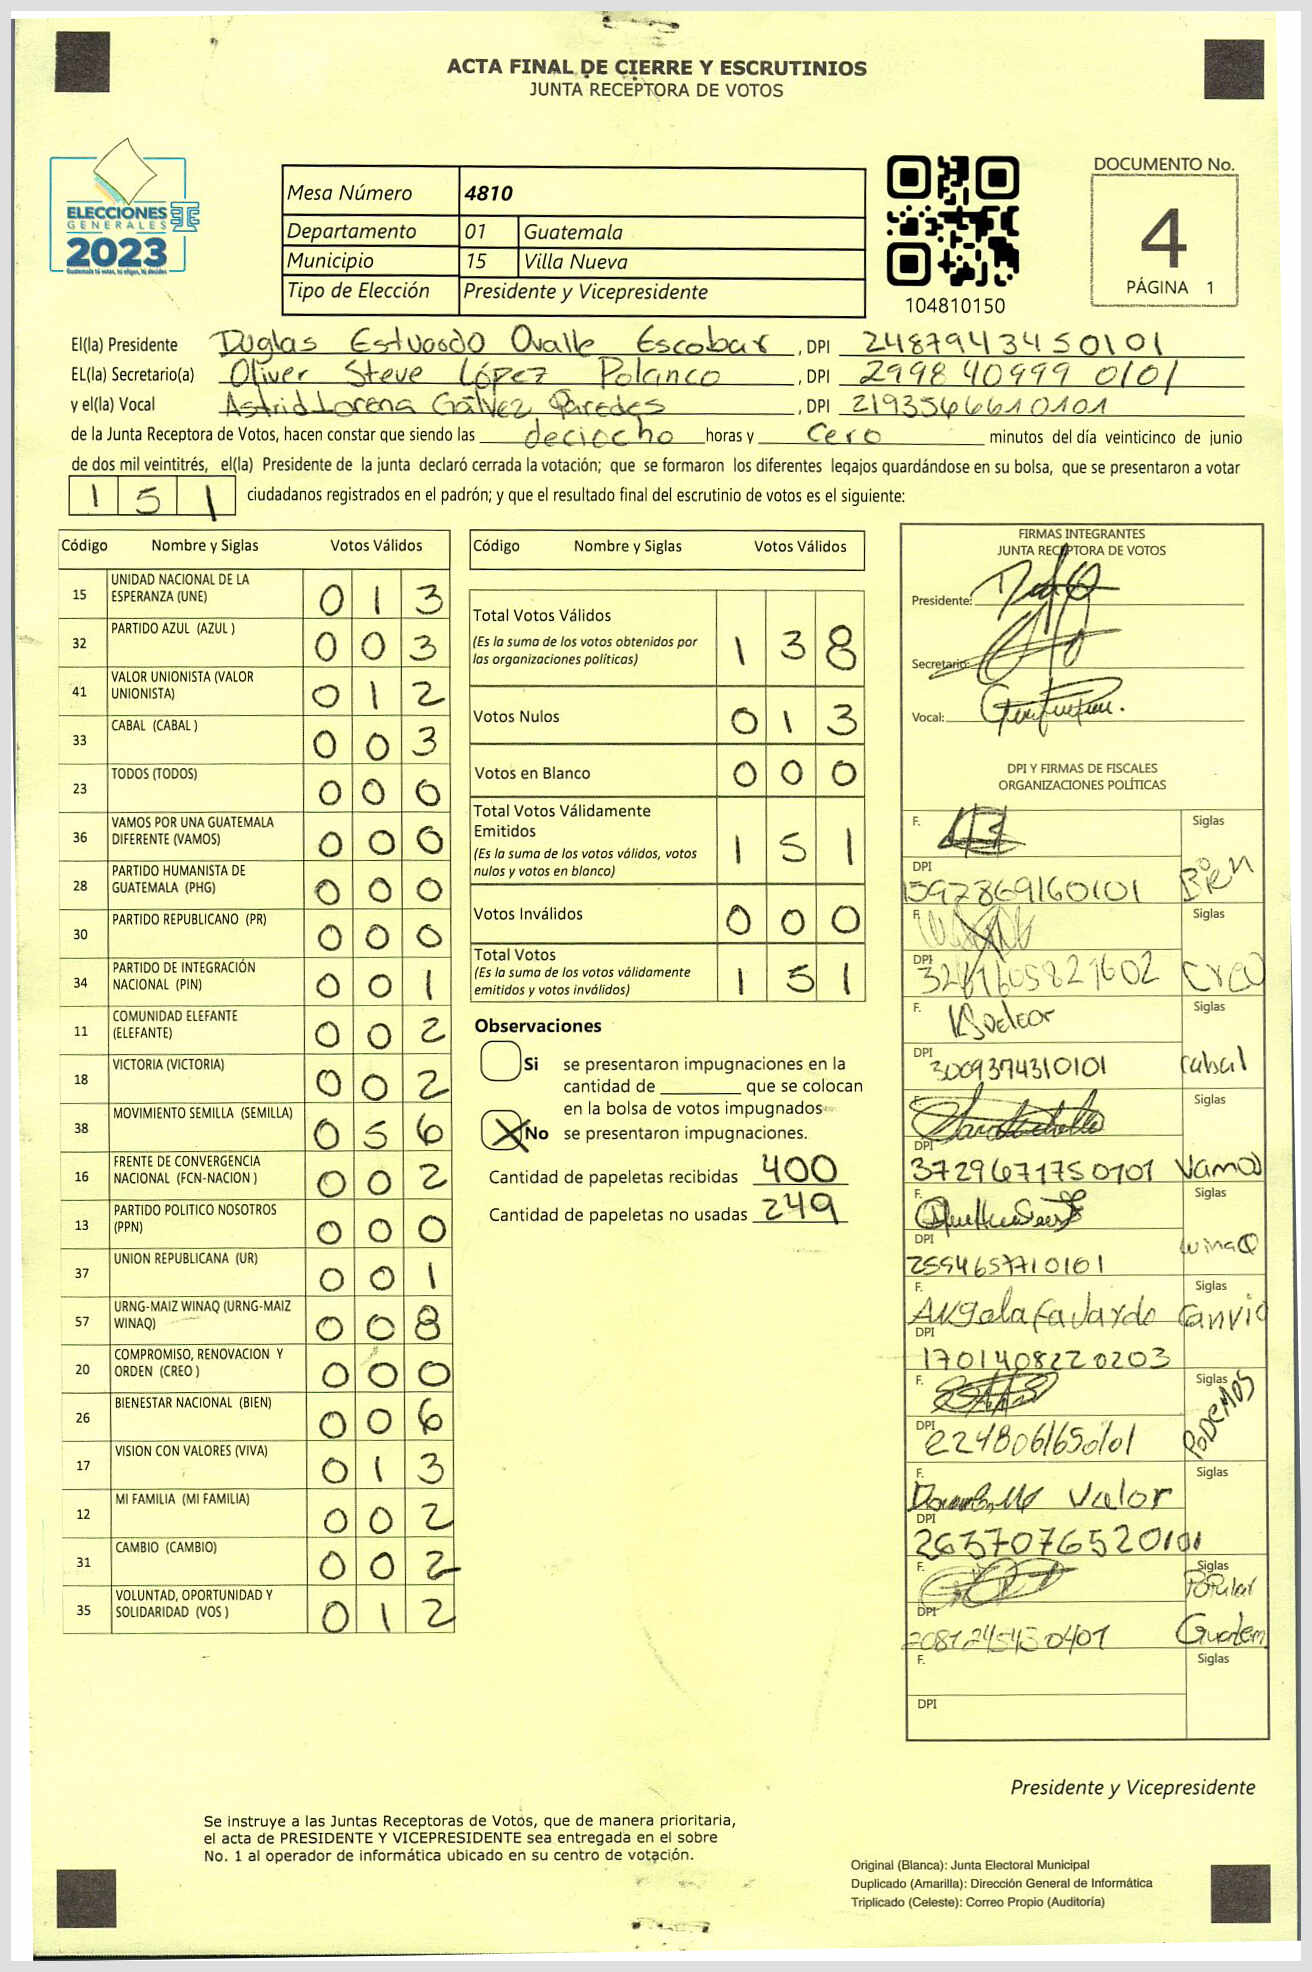 ACTA FINAL DE CIERRE Y ESCRUTINIOS
JUNTA RECEPTORA DE VOTOS
ELECCIONES
GENERALES
2023
Guatemala tú votas, tú eliges, tú decides
Mesa Número 4810
Departamento 01 Guatemala
Municipio 15 Villa Nueva
Tipo de Elección Presidente y Vicepresidente
104810150
DOCUMENTO No.
4
PÁGINA 1
El(la) Presidente Duglas Estuardo Ovalle Escobar , DPI 2487943450101
EL(la) Secretario(a) Oliver Steve López Polanco , DPI 2998409990101
y el(la) Vocal Astrid Lorena Gálvez Paredes , DPI 2193566610101
de la Junta Receptora de Votos, hacen constar que siendo las deciocho horas y cero minutos del día veinticinco de junio
de dos mil veintitrés, el(la) Presidente de la junta declaró cerrada la votación; que se formaron los diferentes legajos guardándose en su bolsa, que se presentaron a votar
151 ciudadanos registrados en el padrón; y que el resultado final del escrutinio de votos es el siguiente:
Código Nombre y Siglas Votos Válidos
15 UNIDAD NACIONAL DE LA ESPERANZA (UNE) 013
32 PARTIDO AZUL (AZUL ) 003
41 VALOR UNIONISTA (VALOR UNIONISTA) 012
33 CABAL (CABAL ) 003
23 TODOS (TODOS) 000
36 VAMOS POR UNA GUATEMALA DIFERENTE (VAMOS) 000
28 PARTIDO HUMANISTA DE GUATEMALA (PHG) 000
30 PARTIDO REPUBLICANO (PR) 000
34 PARTIDO DE INTEGRACIÓN NACIONAL (PIN) 001
11 COMUNIDAD ELEFANTE (ELEFANTE) 002
18 VICTORIA (VICTORIA) 002
38 MOVIMIENTO SEMILLA (SEMILLA) 056
16 FRENTE DE CONVERGENCIA NACIONAL (FCN-NACION ) 002
13 PARTIDO POLITICO NOSOTROS (PPN) 000
37 UNION REPUBLICANA (UR) 001
57 URNG-MAIZ WINAQ (URNG-MAIZ WINAQ) 008
20 COMPROMISO, RENOVACION Y ORDEN (CREO ) 000
26 BIENESTAR NACIONAL (BIEN) 006
17 VISION CON VALORES (VIVA) 013
12 MI FAMILIA (MI FAMILIA) 002
31 CAMBIO (CAMBIO) 002
35 VOLUNTAD, OPORTUNIDAD Y SOLIDARIDAD (VOS ) 012
Código Nombre y Siglas Votos Válidos
Total Votos Válidos 138
(Es la suma de los votos obtenidos por
las organizaciones políticas)
Votos Nulos 013
Votos en Blanco 000
Total Votos Válidamente
Emitidos 151
(Es la suma de los votos válidos, votos
nulos y votos en blanco)
Votos Inválidos 000
Total Votos 151
(Es la suma de los votos válidamente
emitidos y votos inválidos)
Observaciones
Si se presentaron impugnaciones en la
cantidad de ________ que se colocan
en la bolsa de votos impugnados
X No se presentaron impugnaciones.
Cantidad de papeletas recibidas 400
Cantidad de papeletas no usadas 249
FIRMAS INTEGRANTES
JUNTA RECEPTORA DE VOTOS
Presidente:
Secretario:
Vocal:
DPI Y FIRMAS DE FISCALES
ORGANIZACIONES POLÍTICAS
F. Siglas
DPI
1597869160101 BIEN
F. Siglas
DPI
CREO
F. Siglas
DPI
3009374310101 cabal
F. Siglas
DPI
3729671750101 Vamos
F. Siglas
DPI
2554657710101 winaQ
F. Angela Fajardo Siglas
DPI
1701408220203
F. Siglas
DPI
2248061650101 PODEMOS
F. Valor Siglas
DPI
2637076520101
F. Siglas
DPI
Popular
F. Siglas
DPI
Presidente y Vicepresidente
Se instruye a las Juntas Receptoras de Votos, que de manera prioritaria,
el acta de PRESIDENTE Y VICEPRESIDENTE sea entregada en el sobre
No. 1 al operador de informática ubicado en su centro de votación.
Original (Blanca): Junta Electoral Municipal
Duplicado (Amarilla): Dirección General de Informática
Triplicado (Celeste): Correo Propio (Auditoría)